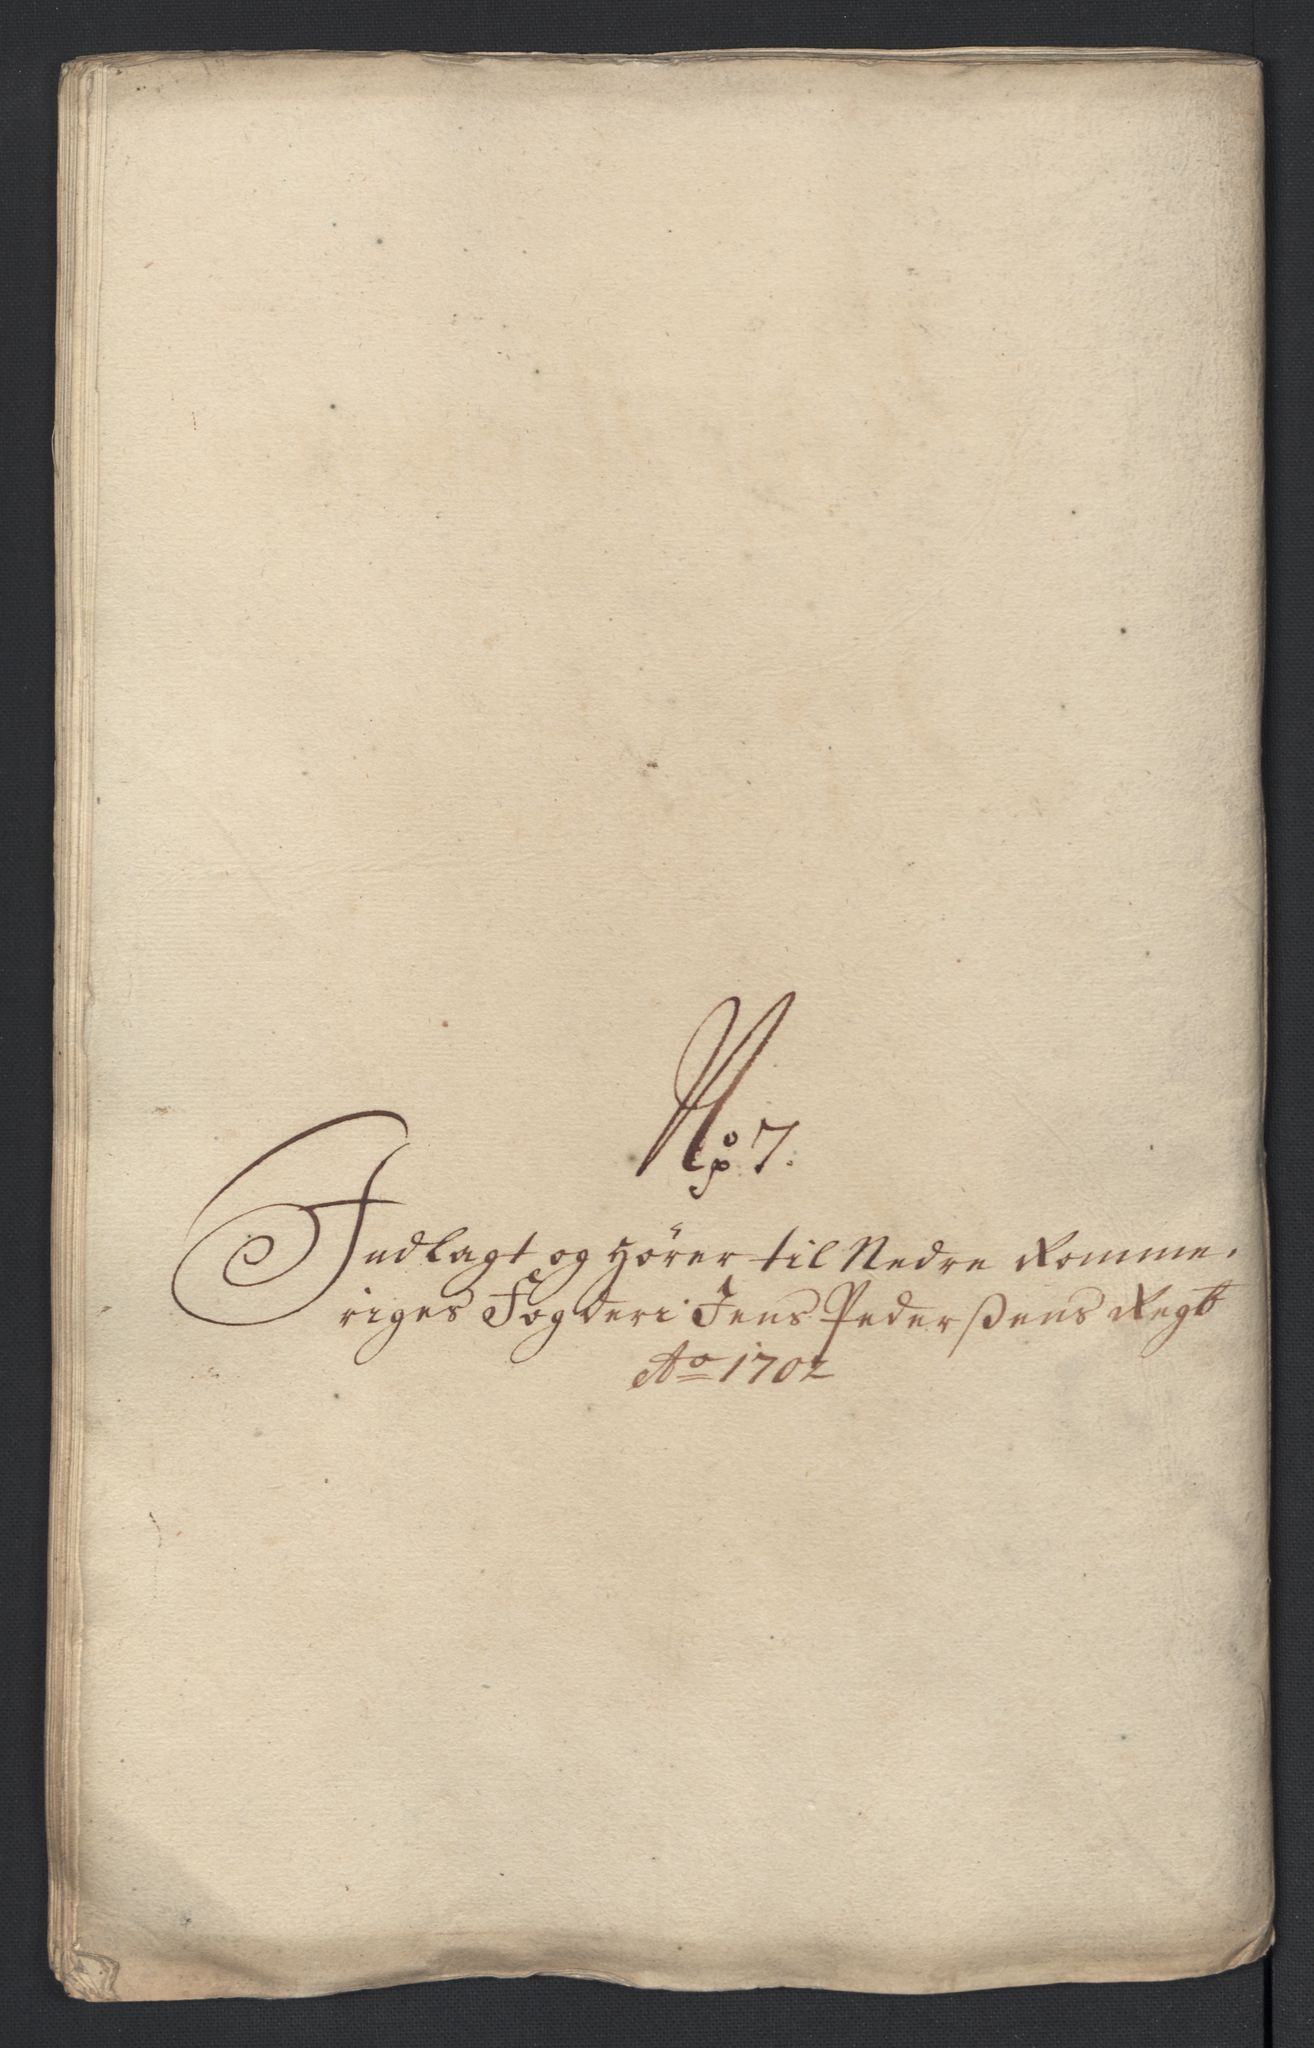 No 7.
Indlagt og hører til Nedre Romme,
riges Fogderi Jens Pederßens Regb
Ao 1702